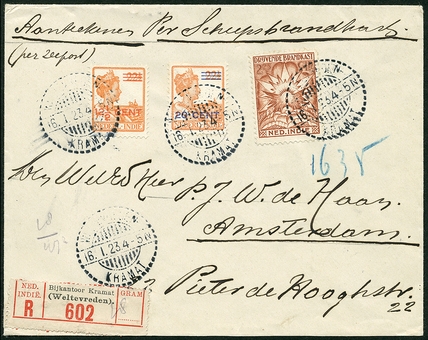 Aantekenen Per Scheepsbrandkast
(per zeepost)
12½ CENT
NED. INDIE
20 CENT
DRIJVENDE BRANDKAST
NED. INDIË
16.1.23.4-5N
KRAMAT
16.1.23.4-5N
KRAMAT
16.1.23.4-5N
KRAMAT
1635
Den WelEd Heer P. J. W. de Haan.
Amsterdam.
Pieter de Hooghstr.
22
16.1.23.4-5N
KRAMAT
NED. INDIË.
R
Bijkantoor Kramat
(Weltevreden).
602
GRAM